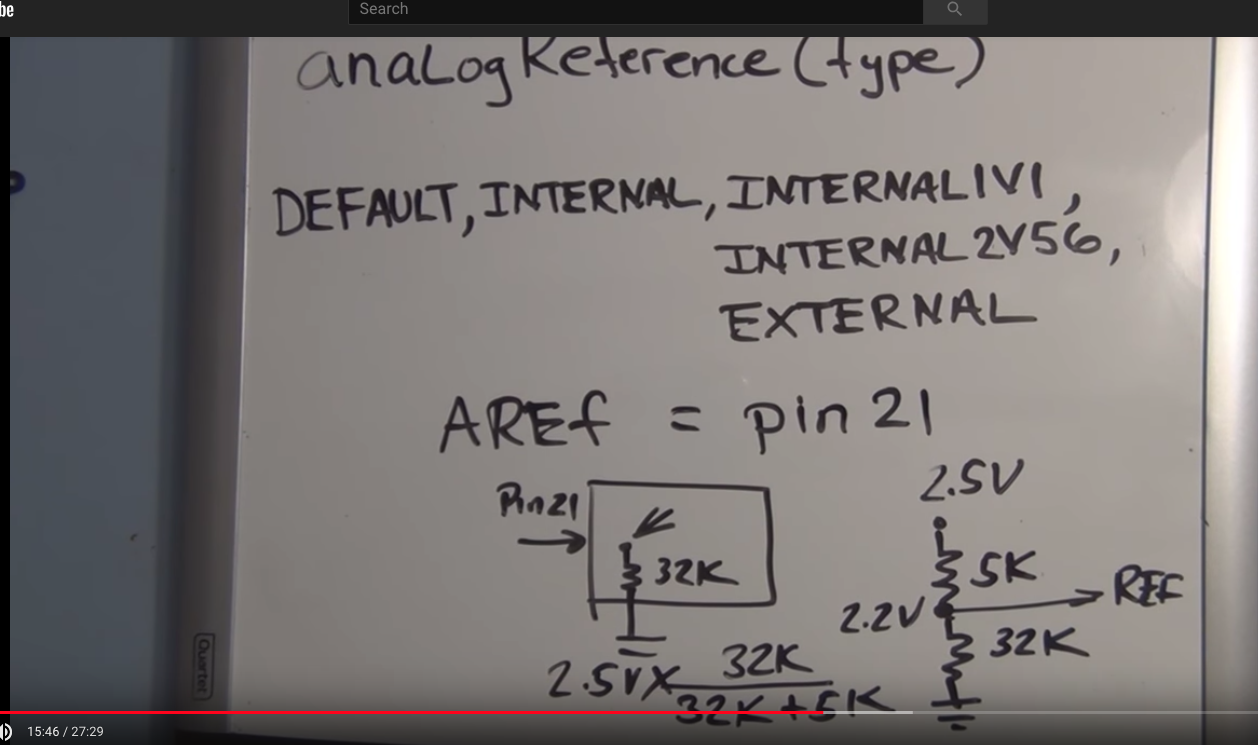 be
Search
analogReference(type)
DEFAULT, INTERNAL, INTERNAL1V1,
INTERNAL2V56,
EXTERNAL
AREf = pin 21
Pin21
32K
2.5V
5K
REF
2.2V
32K
2.5V X 32K
32K + 5K
Quartet
15:46 / 27:29